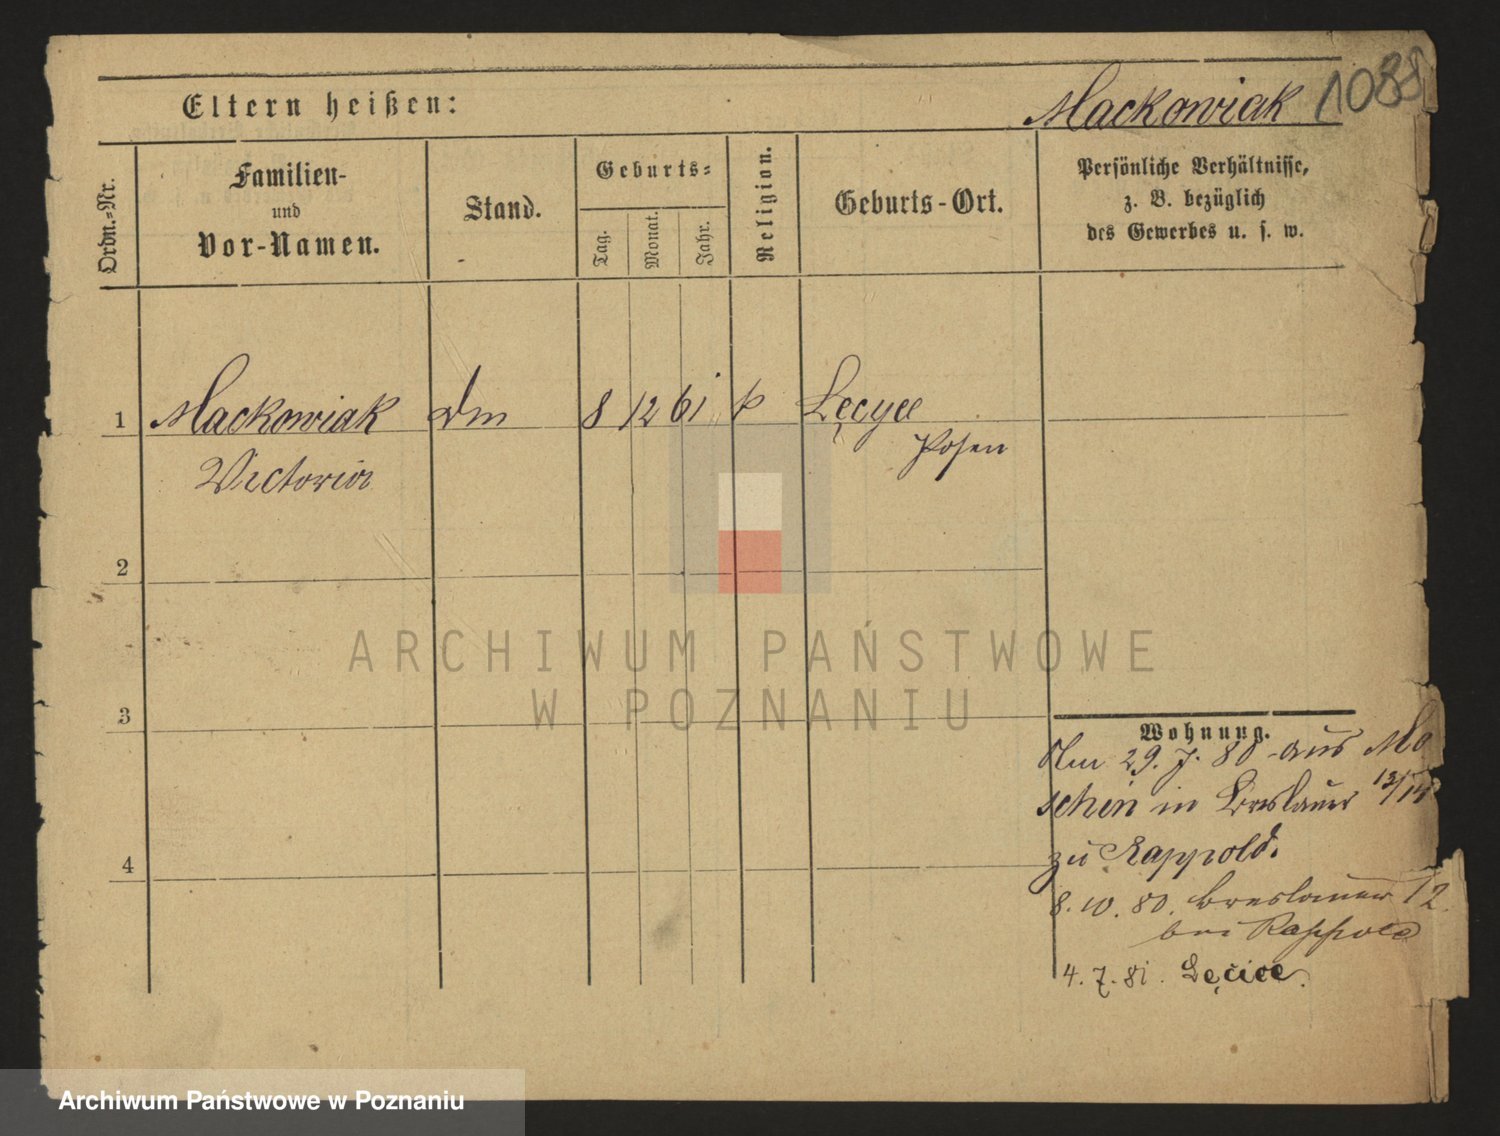 Mackowiak 1088
Eltern heißen:
Ordn.=Nr.
Familien-
und
Vor-Namen.
Stand.
Geburts=
Tag.
Monat.
Jahr.
Religion.
Geburts-Ort.
Persönliche Verhältnisse,
z. B. bezüglich
des Gewerbes u. s. w.
1 Mackowiak 8 12 61 Lęcyce
Victoria Posen
2
3
4
Wohnung.
29. 7. 80 aus Mo
schin in Breslauer 13/14
zu Rappold.
8. 10. 80. Breslauer 12
bei Rappold
4. 7. 81. Lęcice.
ARCHIWUM PAŃSTWOWE
W POZNANIU
Archiwum Państwowe w Poznaniu